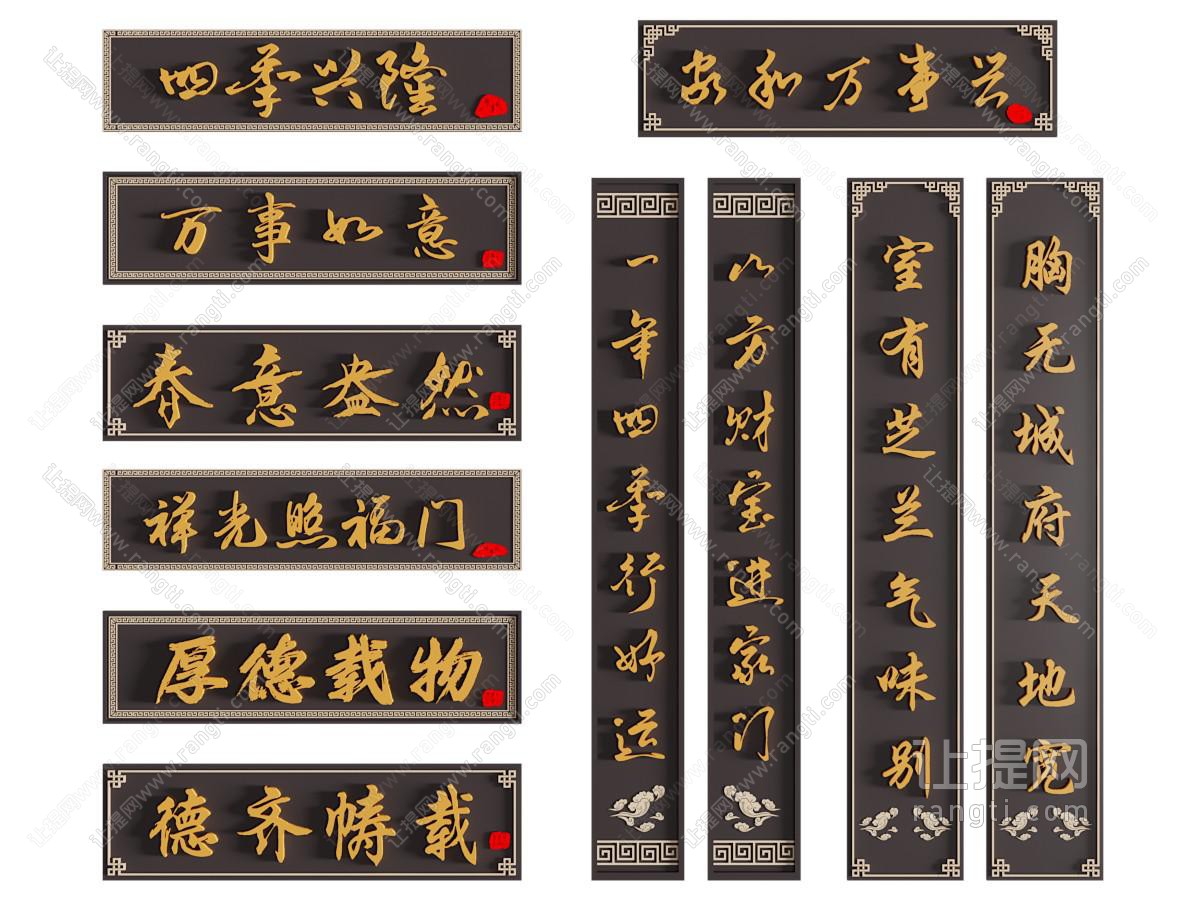 四季兴隆
万事如意
春意盎然
祥光照福门
厚德载物
德齐帱载
家和万事兴
一年四季行好运
八方财宝进家门
室有芝兰气味别
胸无城府天地宽
让提网
rangti.com